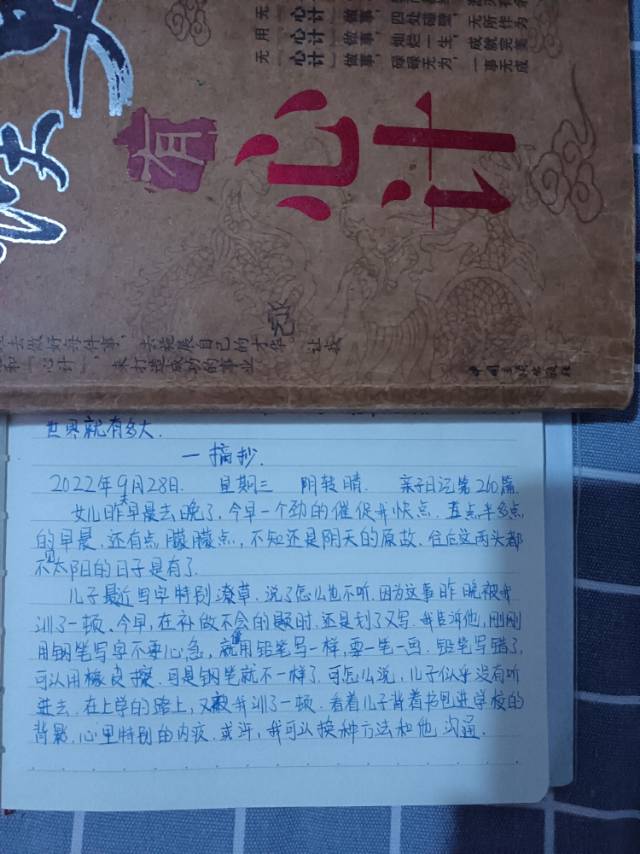 无用无
心计
心计
心计
做事，四处碰壁，无所作为
做事，灿烂一生，成就完美
做事，碌碌无为，一事无成
有
心计
去做好每件事，去施展自己的才华
让我
和“心计”，来打造成功的事业
中国 出版社
世界就有多大.
一摘抄.
2022年9月28日. 星期三 阴转晴. 亲子日记第260篇
女儿昨天早晨去晚了，今早一个劲的催促开快点. 五点半多点
的早晨，还有点朦朦点，不知还是阴天的原故. 往后这两头都
不见太阳的日子是有了.
儿子最近写字特别潦草，说了怎么也不听. 因为这事昨晚被我
训了一顿. 今早，在补做不会的题时，还是划了又写. 我告诉他，刚刚
用钢笔写字不要心急，就像用铅笔写一样，要一笔一画. 铅笔写错了，
可以用橡皮擦. 可是钢笔就不一样了. 可怎么说，儿子似乎没有听
进去. 在上学的路上，又被我训了一顿. 看着儿子背着书包进学校的
背影，心里特别的内疚. 或许，我可以换种方法和他沟通.